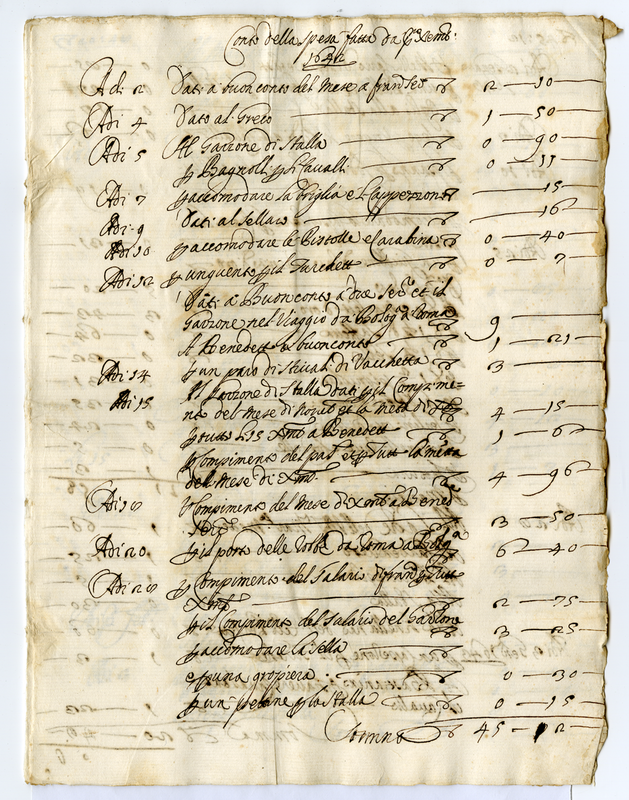 Conto della spesa fatta da Xemb:
1642
Adi 2 Dati a buon conto del Mese a fran 2 — 10
Adi 4 Dato al Greco 1 — 50
Adi 5 Al Garzone di Stalla 0 — 90
p Bagnoli p li Cavalli 0 — 11
Adi 7 p accomodare la briglia e 15
Adi 9 Dati al sellaro 16
Adi 10 p accomodare le Pistolle e Carabina 0 — 40
Adi 12 p unguento p il 0 — 7
Dati a Buon conto a due Ser.ri et il
Garzone nel Viaggio da Bolog.a a Roma 9
A Benedetto a buon conto 1 — 21
Adi 14 p un paro di stivali di Vacchetta 3
Adi 15 Al Garzone di Stalla dati p il Compime=
nto del Mese di et la metà di 4 — 15
p tutto li 15 Xmb a Benedetto 1 — 6
p Compimento del et p tutto la metà
del mese di Xmb 4 — 96
Adi Compimento del Mese di Xmb a Bened
3 — 50
Adi 20 p il porto delle robbe da Roma a Bolog.a 6 — 40
Adi p Compimento del Salario di fran p tutto
Xmb 2 — 75
p il Compimento del Salario del Garzone 3 — 25
p accomodare la sella
e p una gropiera 0 — 30
p un petene p la Stalla 0 — 15
Somma 45 — 2